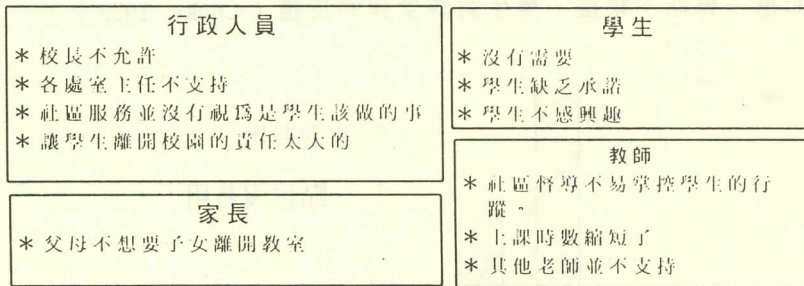 行政人員
* 校長不允許
* 各處室主任不支持
* 社區服務並沒有視為是學生該做的事
* 讓學生離開校園的責任太大的
家長
* 父母不想要子女離開教室
學生
* 沒有需要
* 學生缺乏承諾
* 學生不感興趣
教師
* 社區督導不易掌控學生的行
蹤。
* 上課時數縮短了
* 其他老師並不支持